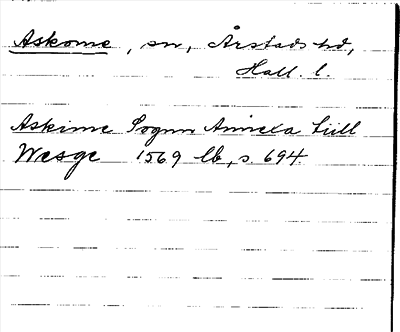 Askome, sn, Årstads hd,
Hall. l.
Askime Sognn Annexa till
Wesge 1569 lb, s. 694.